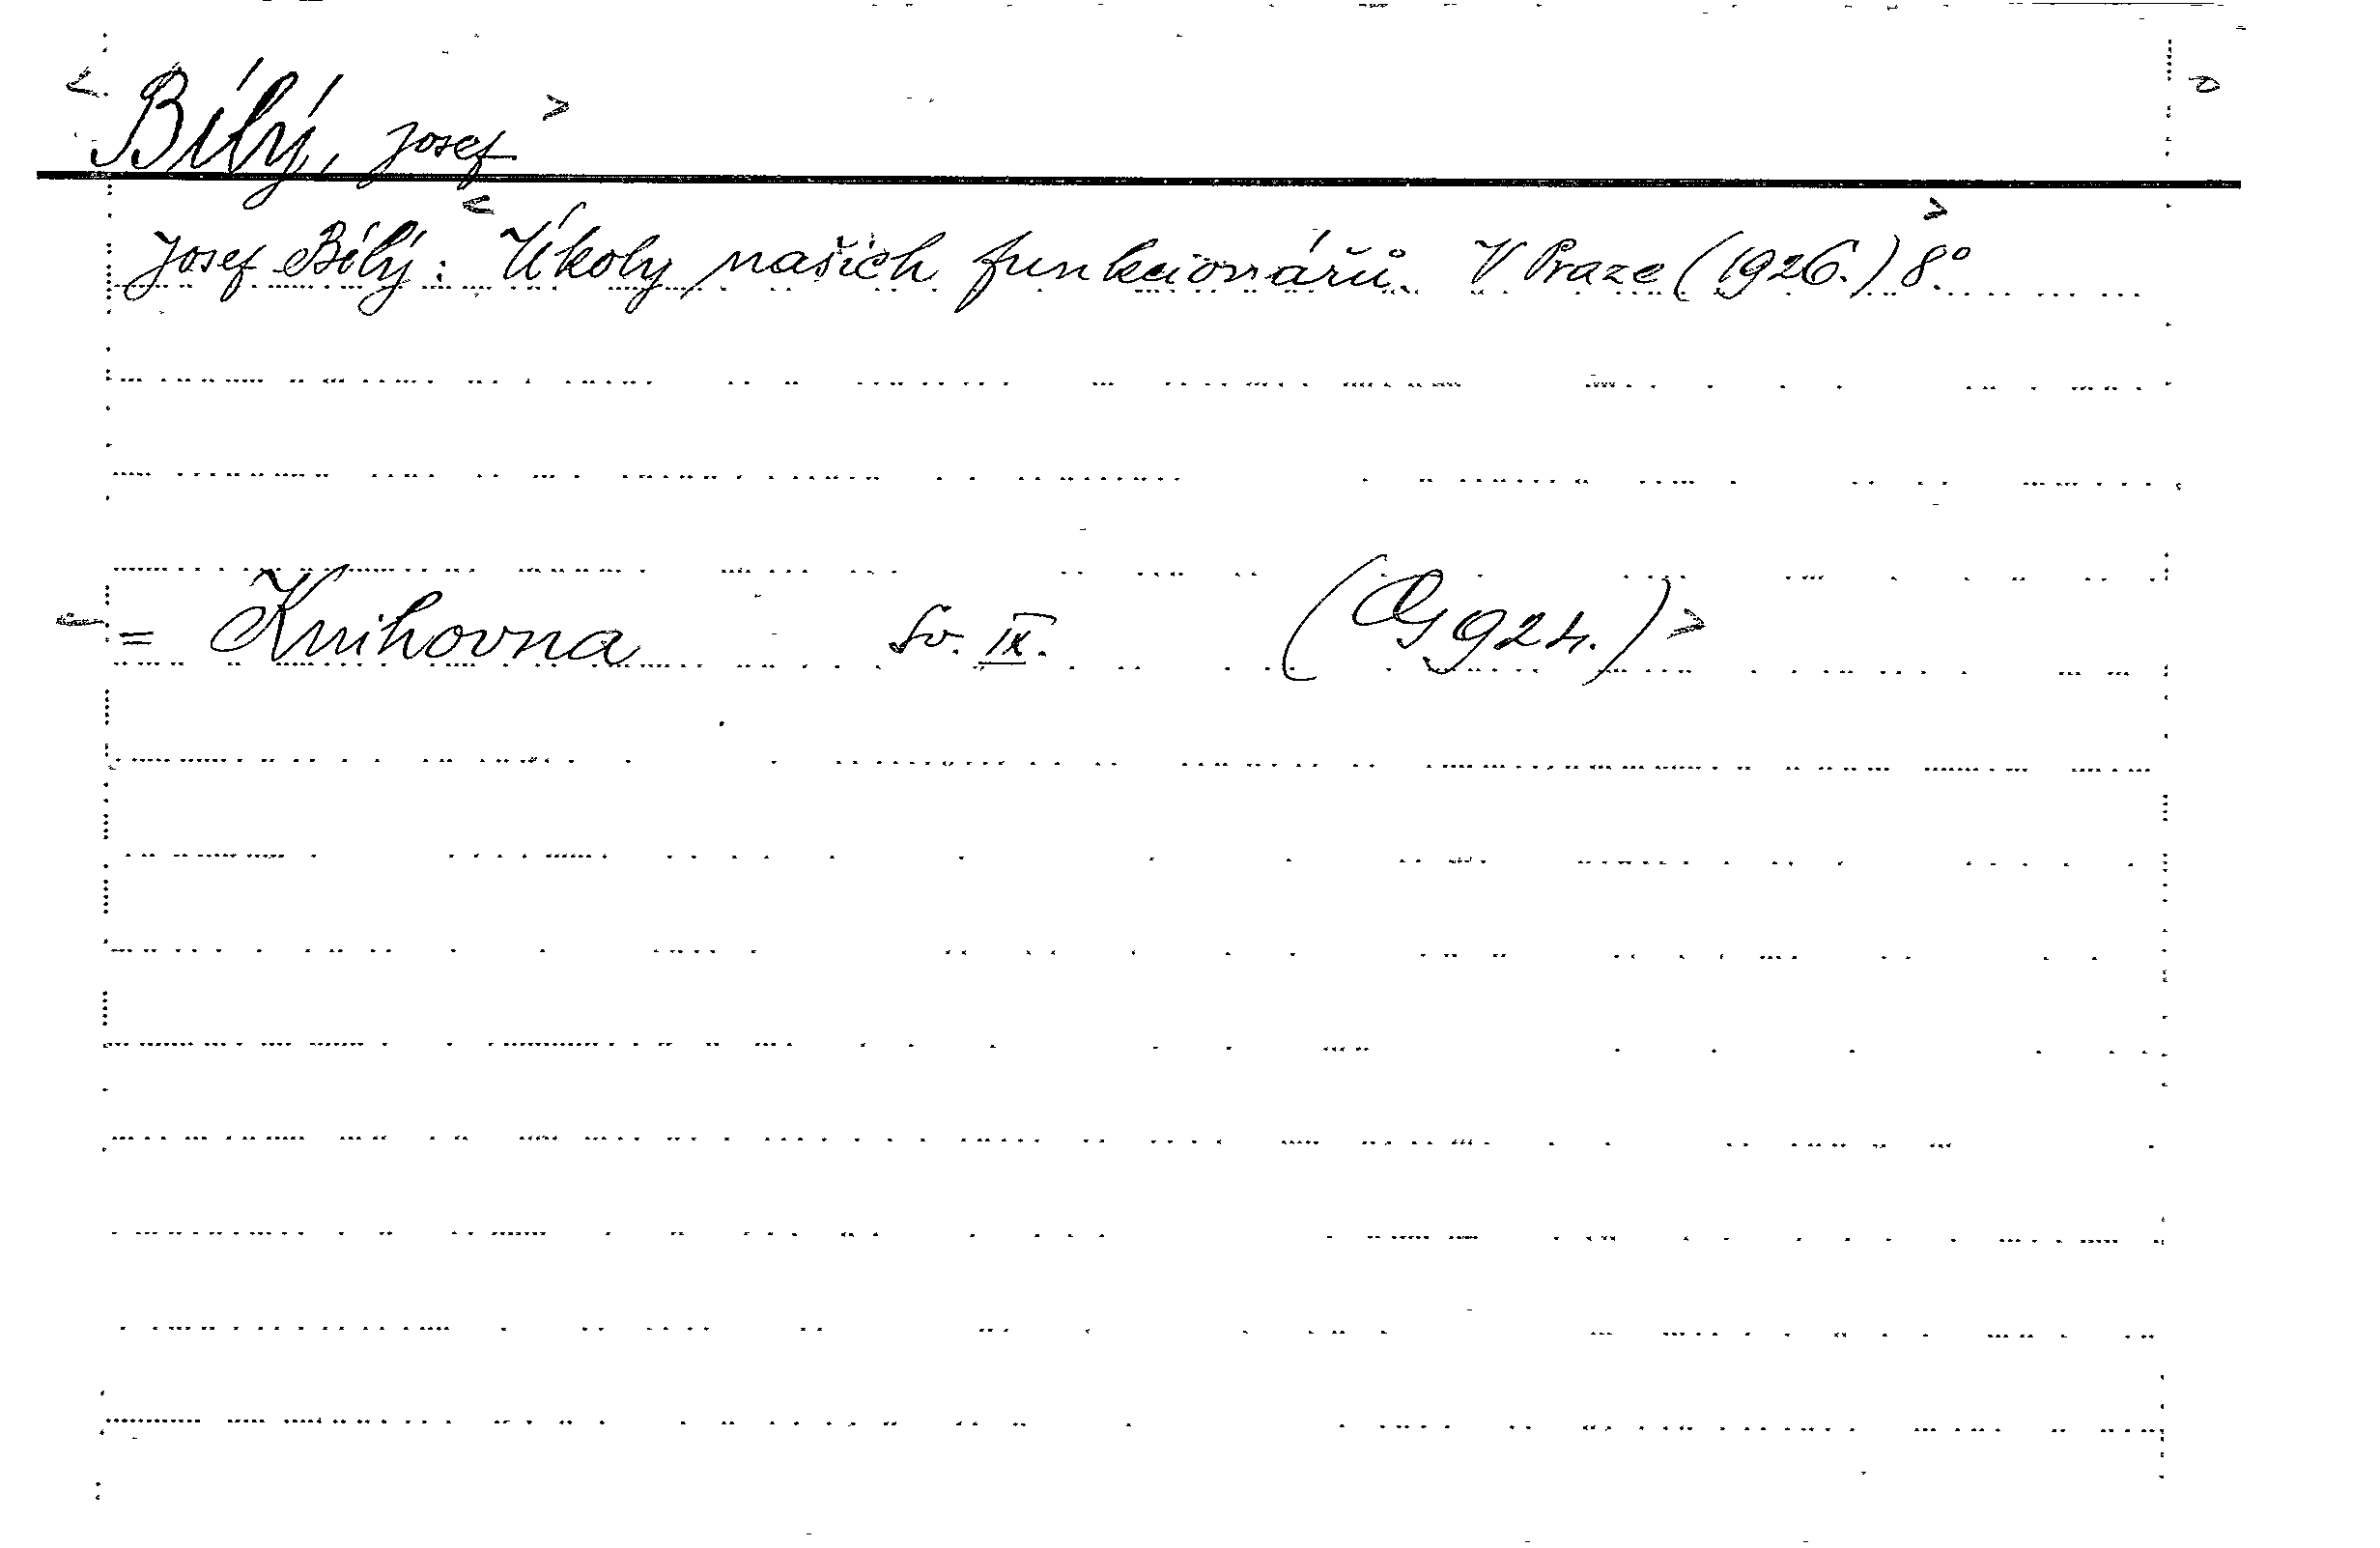 <Bílý, Josef>
Josef Bílý: <Úkoly našich funkcionářů. V Praze (1926.)> 8°.
<= Knihovna Sv. IX. (G 924.)>